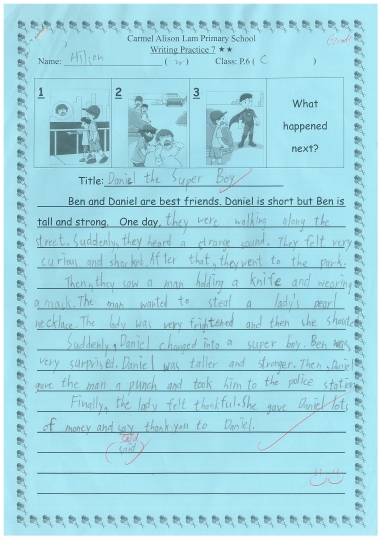 Carmel Alison Lam Primary School
Writing Practice 7 ★★
Name: Hilson ( 20 ) Class: P.6 ( C )
1 2 3 What
happened
next?
Title: Daniel the Super Boy
Ben and Daniel are best friends. Daniel is short but Ben is
tall and strong. One day, they were walking along the
street. Suddenly, they heard a strange sound. They felt very
curious and shocked. After that, they went to the park.
Then, they saw a man holding a knife and wearing
a mask. The man wanted to steal a lady's pearl
necklace. The lady was very frightened and then she shouted
Suddenly, Daniel changed into a super boy. Ben was
very surprised. Daniel was taller and stronger. Then, Daniel
gave the man a punch and took him to the police station
Finally, the lady felt thankful. She gave Daniel lots
of money and say thank you to Daniel.
said
said